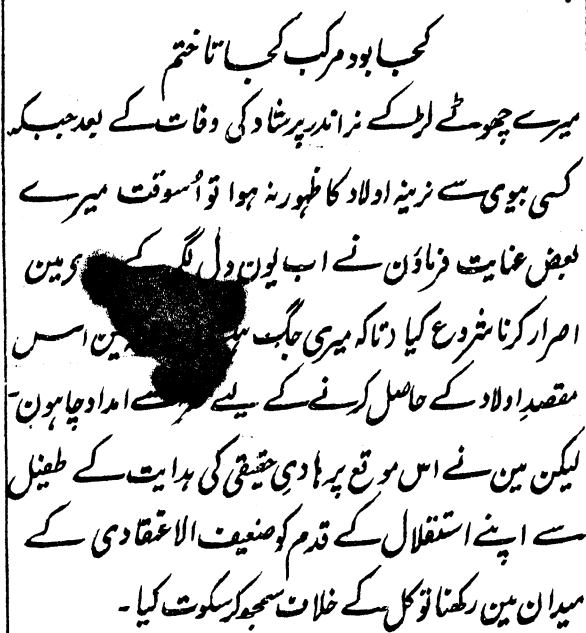 کجا بود مرکب کجا تاختم
میرے چھوٹے لڑکے نراندر پرشاد کی وفات کے بعد جبکہ
کسی بیوی سے نرینہ اولاد کا ظہور نہ ہوا تو اُسوقت میرے
بعض عنایت فرماؤن نے اب یون دل لگی کے مین
اصرار کرنا شروع کیا (تاکہ میری جگ مین اس
مقصدِ اولاد کے حاصل کرنے کے لیے سے امداد چاہون۔
لیکن مین نے اس موقع پر ہادیِ حقیقی کی ہدایت کے طفیل
سے اپنے استقلال کے قدم کو ضعیف الاعتقادی کے
میدان مین رکھنا توکل کے خلاف سمجھ کر سکوت کیا۔